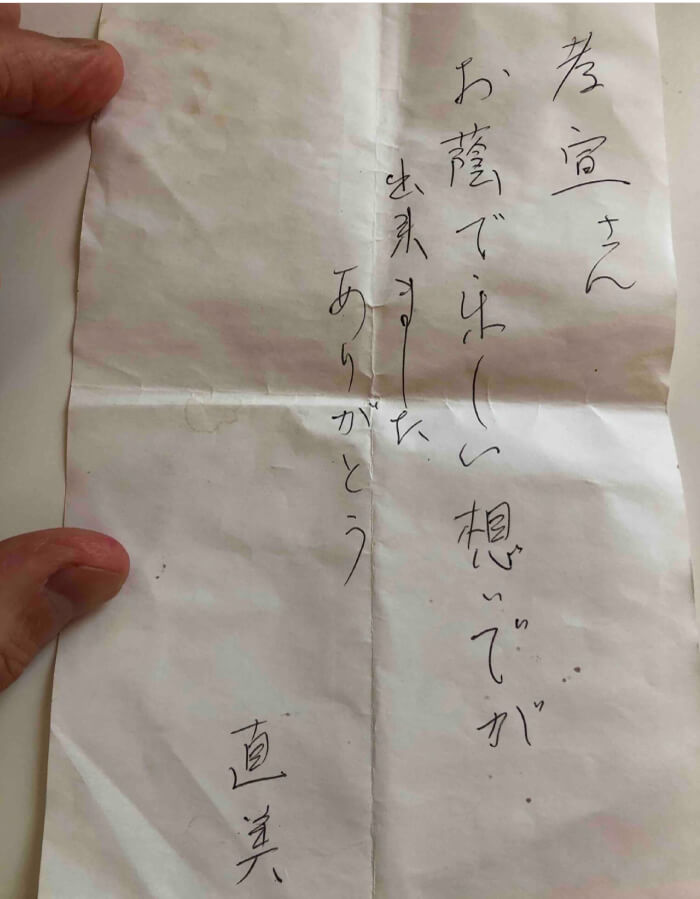 孝宣さん
お蔭で楽しい想いでが
出来ました
ありがとう
直美